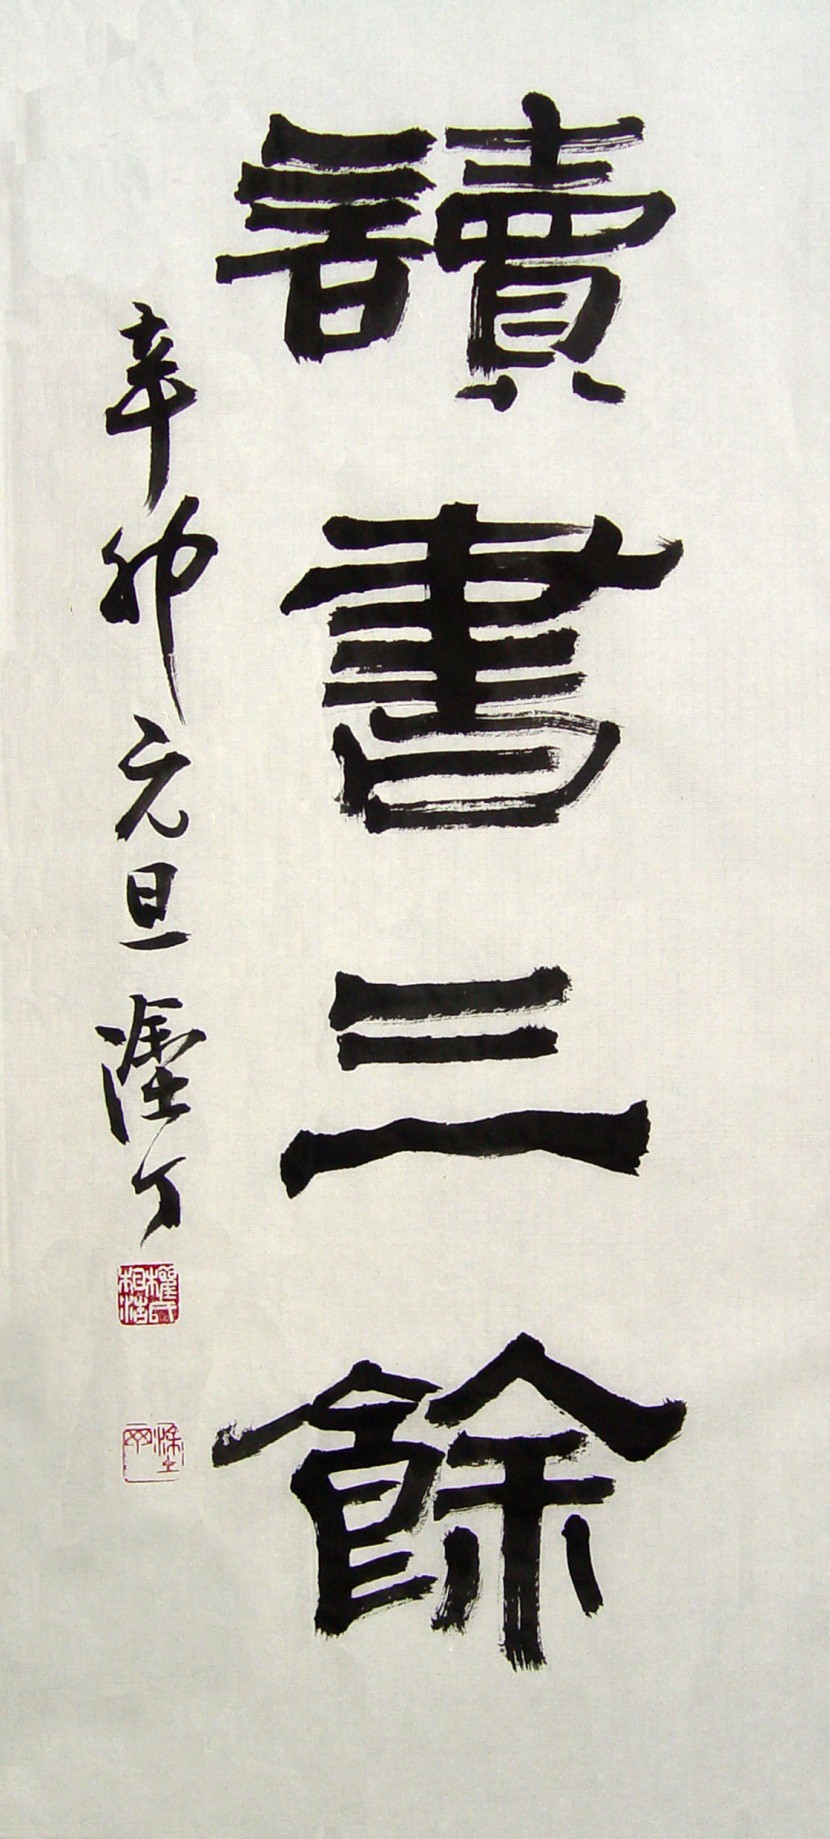 讀書三餘
辛卯元旦